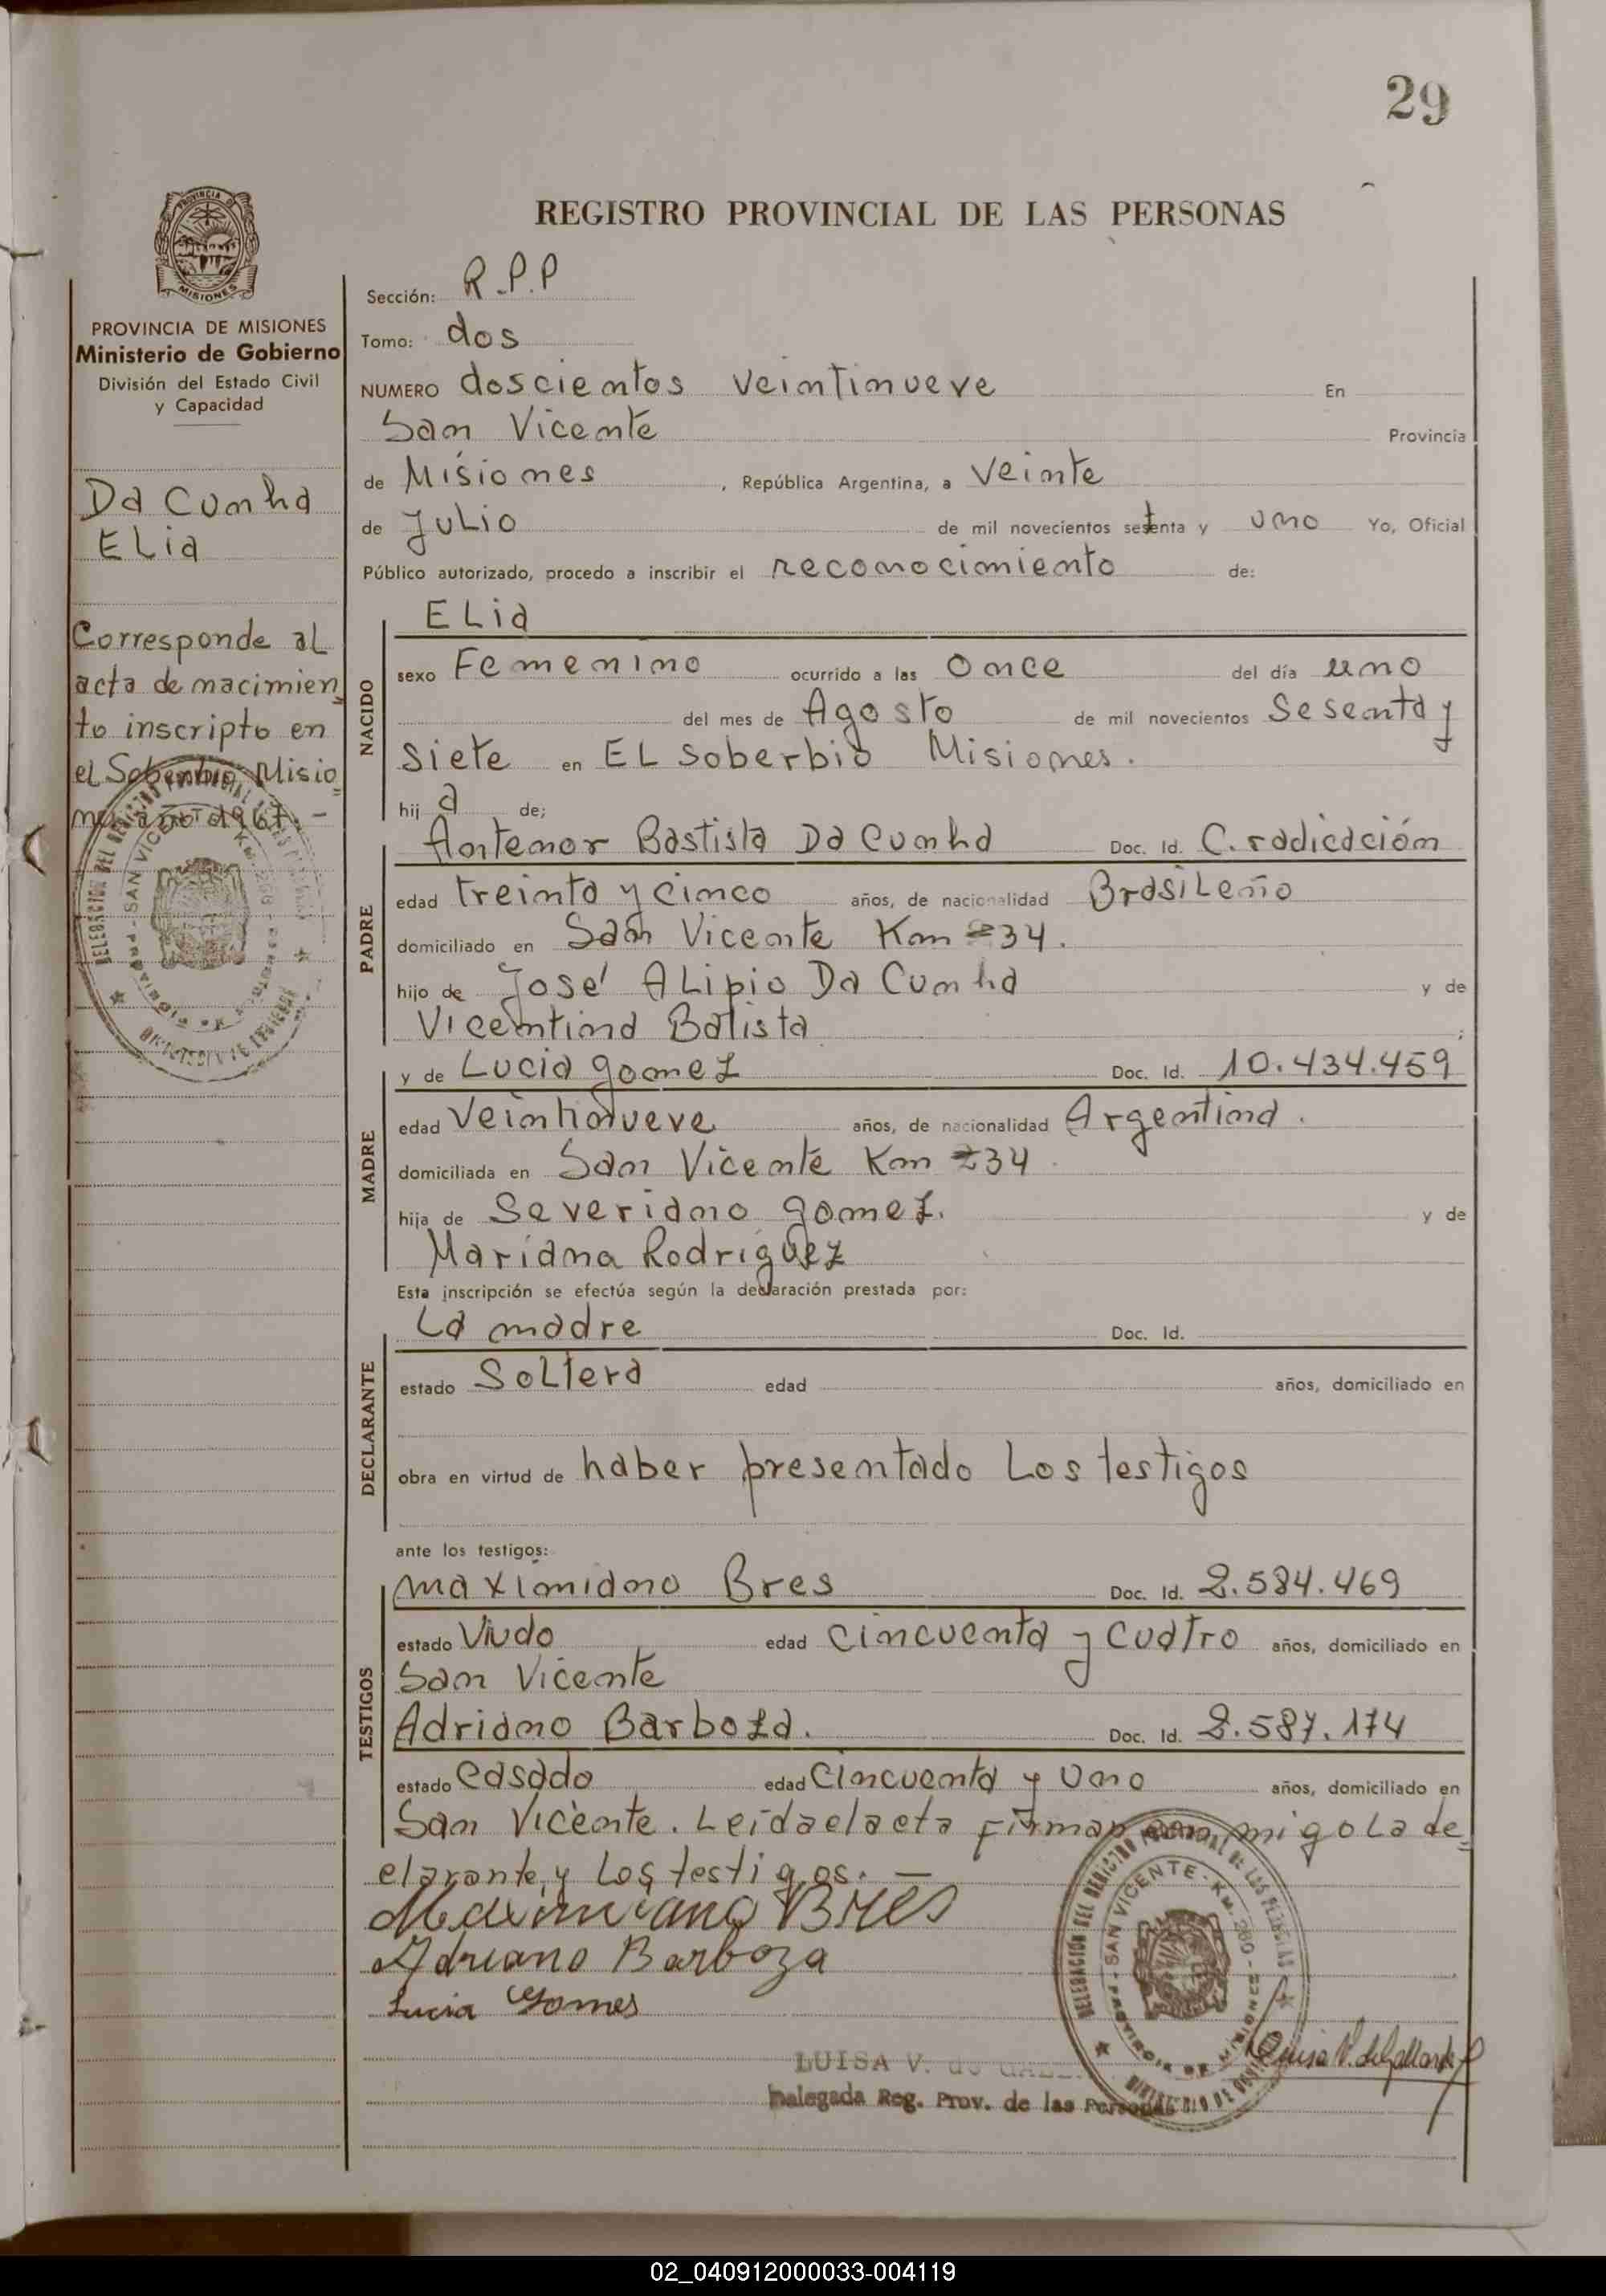 29
REGISTRO PROVINCIAL DE LAS PERSONAS
PROVINCIA DE MISIONES
Ministerio de Gobierno
División del Estado Civil
y Capacidad
Da Cunha
Elia
Corresponde al
acta de nacimien
to inscripto en
el Soberbio Misio
nes año 1967. -
Sección: R.P.P
Tomo: dos
NUMERO doscientos veintinueve En
San Vicente Provincia
de Misiones , República Argentina, a veinte
de Julio de mil novecientos setenta y uno Yo, Oficial
Público autorizado, procedo a inscribir el reconocimiento de:
NACIDO
Elia
sexo Femenino ocurrido a las Once del día uno
del mes de Agosto de mil novecientos Sesenta y
siete en El Soberbio Misiones.
hij a de;
PADRE
Antenor Bastista Da Cunha Doc. Id. C. radicación
edad treinta y cinco años, de nacionalidad Brasileño
domiciliado en San Vicente Km 234.
hijo de José Alipio Da Cunha y de
Vicentina Batista ;
MADRE
y de Lucia gomez Doc. Id. 10.434.459
edad Veintinueve años, de nacionalidad Argentina.
domiciliada en San Vicente Km 234
hija de Severiano gomez. y de
Mariana Rodriguez
Esta inscripción se efectúa según la declaración prestada por:
DECLARANTE
La madre Doc. Id.
estado Soltera edad años, domiciliado en
obra en virtud de haber presentado Los testigos
ante los testigos:
TESTIGOS
Maximiano Bres Doc. Id. 2.584.469
estado Viudo edad cincuenta y cuatro años, domiciliado en
San Vicente
Adriano Barboza. Doc. Id. 2.587.174
estado casado edad cincuenta y Uno años, domiciliado en
San Vicente. Leida el acta firman conmigo La de
clarante y Los testigos. —
Maximiano Bres
Adriano Barboza
Lucia Gomes
LUISA V. de
Delegada Reg. Prov. de las Personas
Luisa V. de Gallardo
02_040912000033-004119